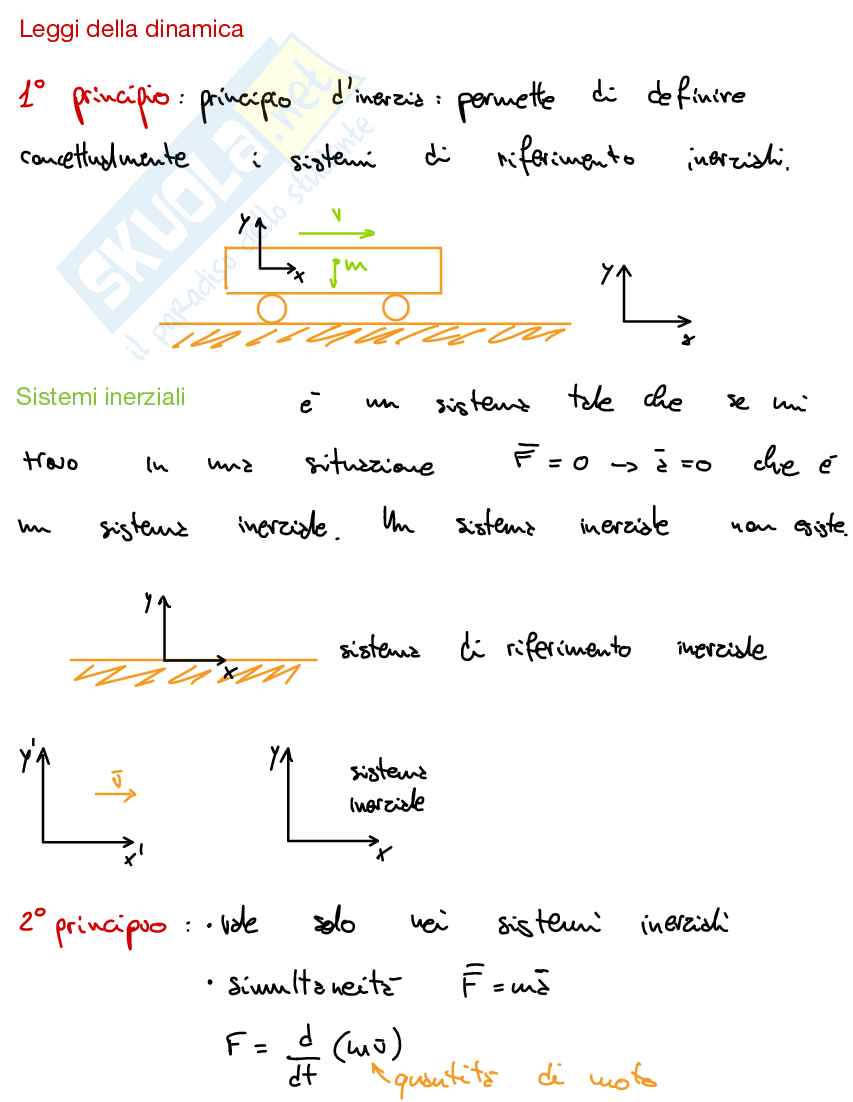 Leggi della dinamica
1° principio : principio d'inerzia : permette di definire
concettualmente i sistemi di riferimento inerziali.
SKUOLA.net
il paradiso dello studente
y v
m
x
y
x
Sistemi inerziali è un sistema tale che se mi
trovo in una situazione F̄ = 0 → ā = 0 che è
un sistema inerziale. Un sistema inerziale non esiste.
y
x
sistema di riferimento inerziale
y' v̄ y sistema
inerziale
x' x
2° principuo : • vale solo nei sistemi inerziali
• simultaneità F̄ = mā
F = d/dt (mv̄)
quantità di moto